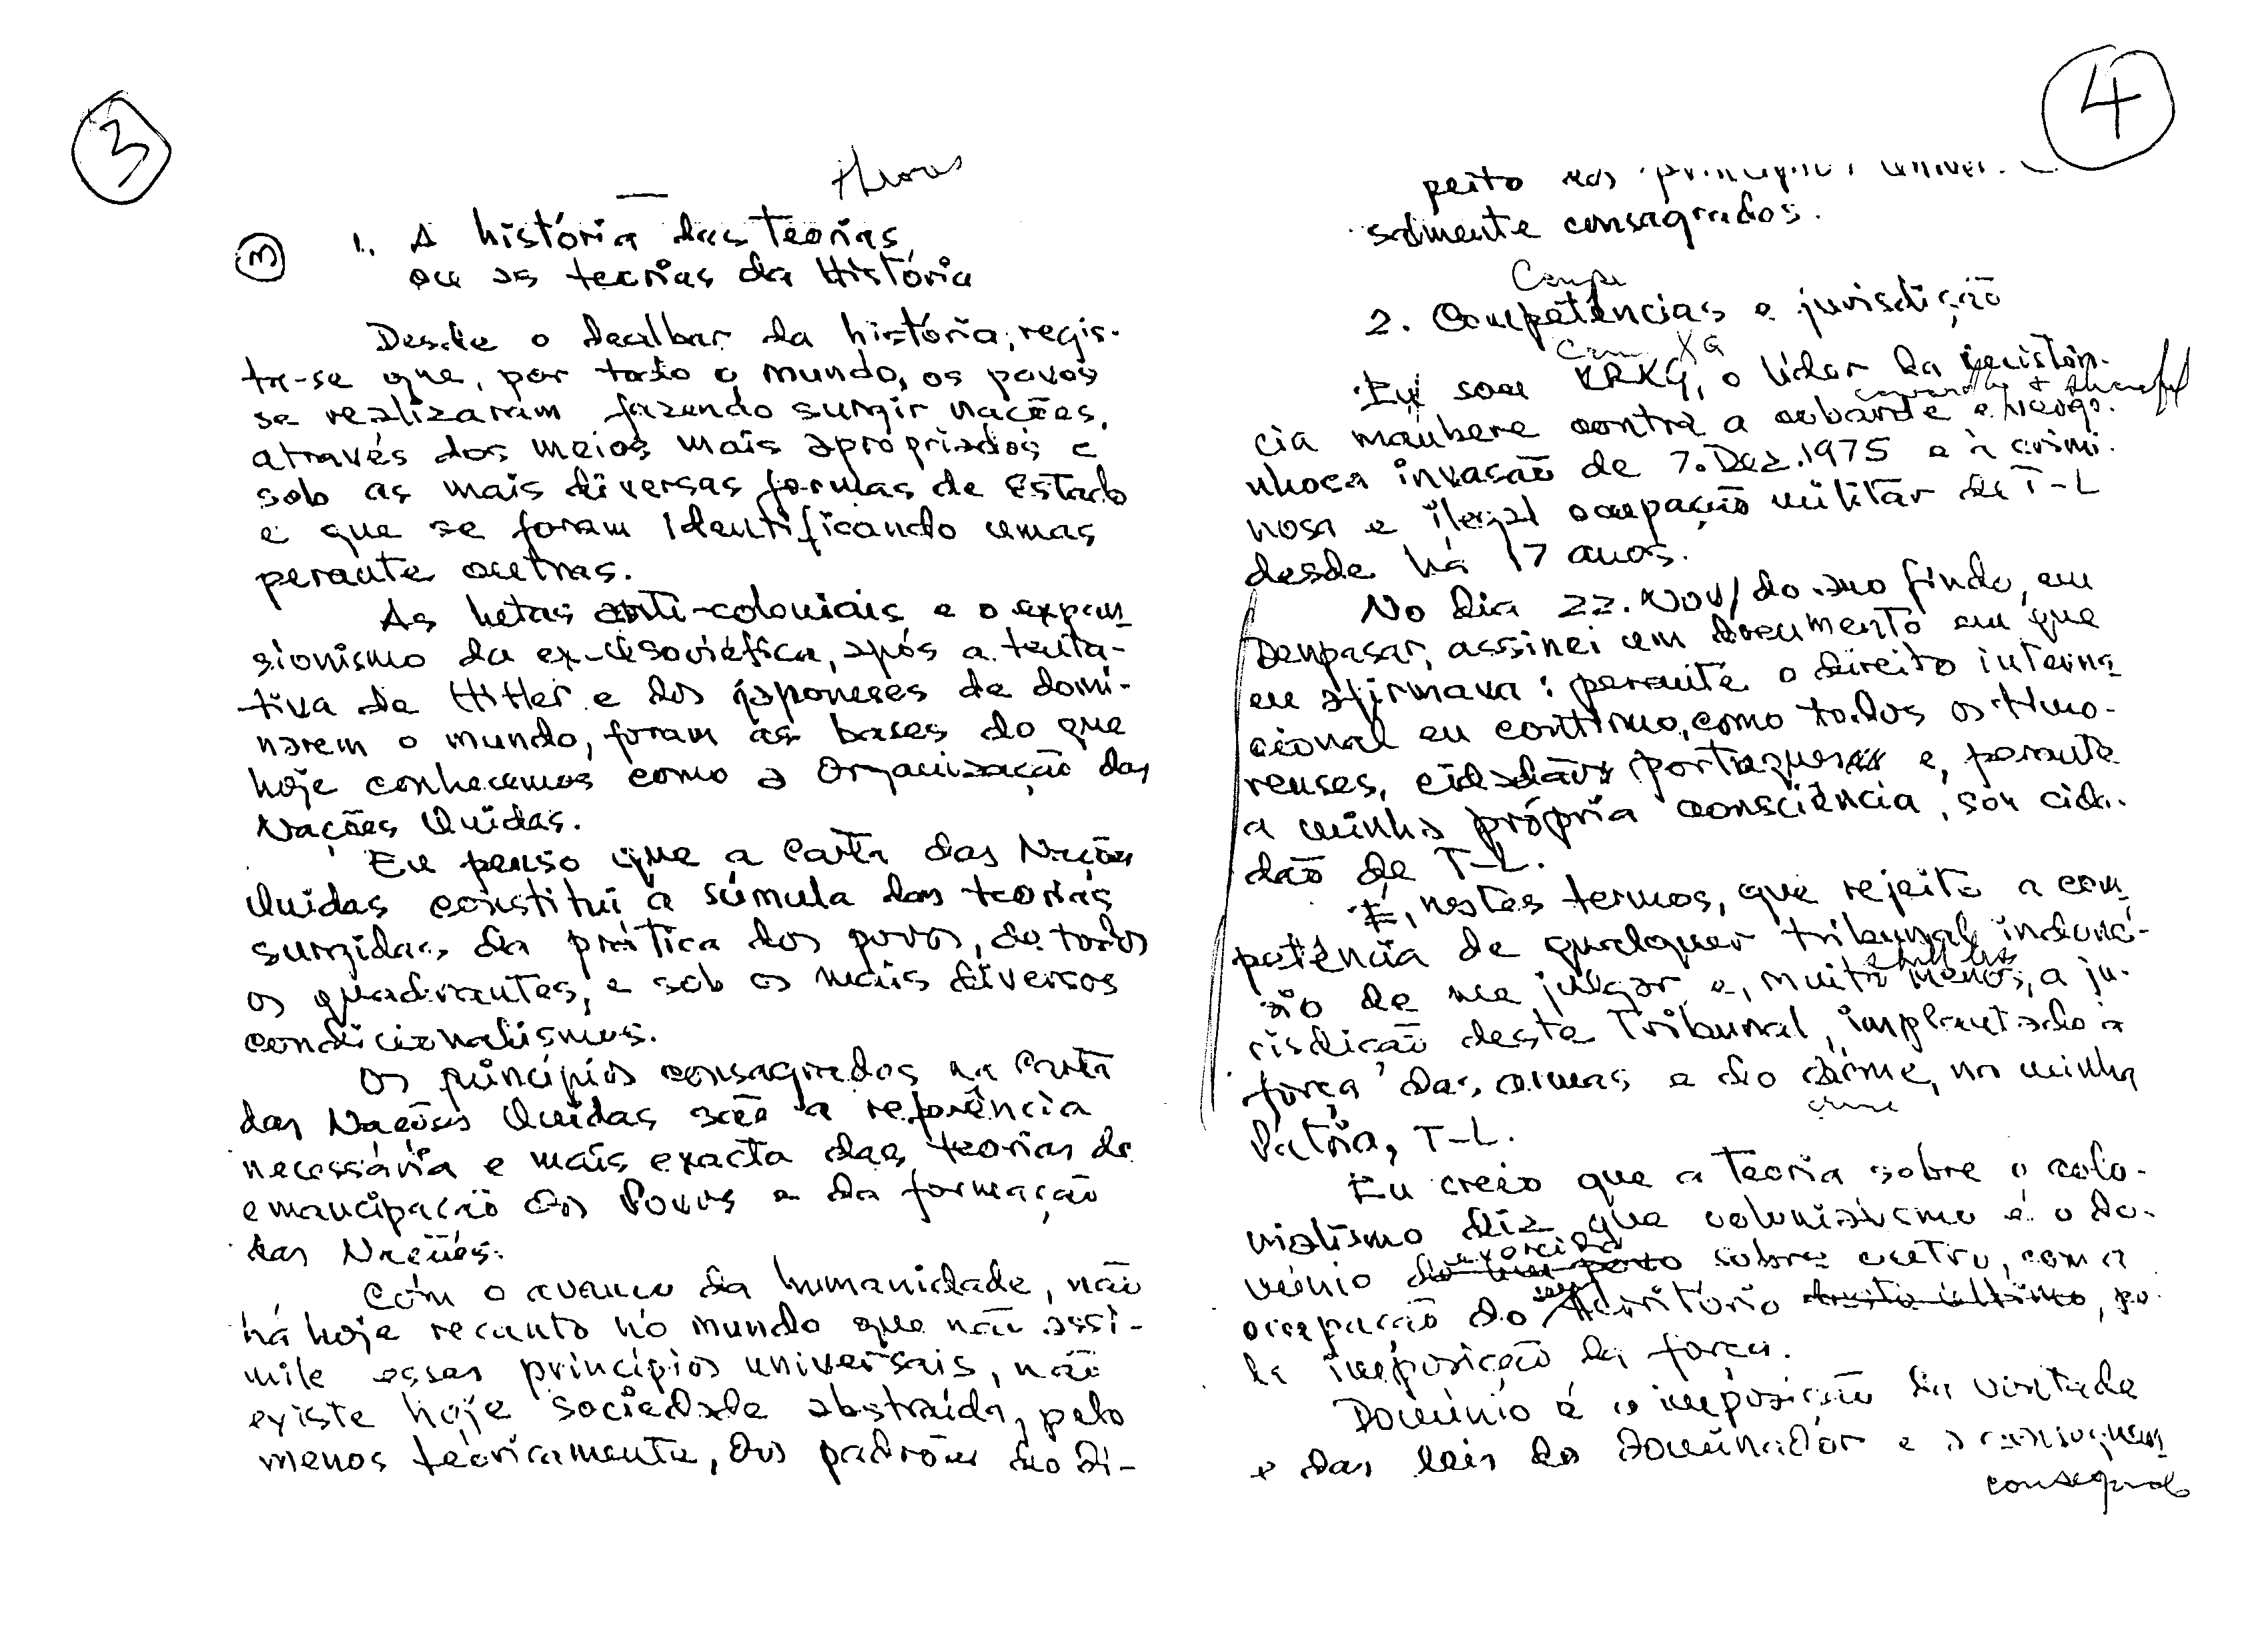 3
1. A história das Teorias
ou as teorias da História
Desde o dealbar da história, regis-
ta-se que, por todo o mundo, os povos
se realizaram fazendo surgir nações,
através dos meios mais apropriados e
sob as mais diversas formas de Estado
e que se foram identificando umas
perante outras.
As lutas anti-coloniais e o expan-
sionismo da ex-U soviética, após a tenta-
tiva de Hitler e dos japoneses de domi-
narem o mundo, foram as bases do que
hoje conhecemos como a Organização das
Nações Unidas.
Eu penso que a Carta das Nações
Unidas constitui a súmula das teorias
surgidas da prática dos povos, de todos
os quadrantes, e sob os mais diversos
condicionalismos.
Os princípios consagrados na Carta
das Nações Unidas são a referência
necessária e mais exacta das teorias da
emancipação dos Povos e da formação
das Nações.
Com o avanço da humanidade, não
há hoje recanto no mundo que não assi-
mile esses princípios universais, não
existe hoje sociedade abstraída, pelo
menos teoricamente, dos padrões do di-
4
peito aos princípios univer-
salmente consagrados.
2. Competências e jurisdição
Eu sou XRKG, o líder da resistên-
cia maubere contra a cobarde e vergo-
nhosa invasão de 7.Dez.1975 e à crimi-
nosa e ilegal ocupação militar de T-L
desde há 17 anos.
No dia 22.Nov/do ano findo, em
Denpasar, assinei um documento em que
eu afirmava: perante o direito interna-
cional eu continuo, como todos os timo-
renses, cidadão português e, perante
a minha própria consciência, sou cida-
dão de T-L.
É, nestes termos, que rejeito a com-
petência de qualquer tribunal indoné-
sio de me julgar e, muito menos, a ju-
risdição deste Tribunal, implantado à
força das armas e do crime, na minha
crime
Pátria, T-L.
Eu creio que a Teoria sobre o colo-
nialismo diz que colonialismo é o do-
exercido
mínio do um povo sobre outro, com a
seu
ocupação do território deste último, pe-
la imposição da força.
Domínio é a imposição da vontade
e das leis do Dominador e a consequen-